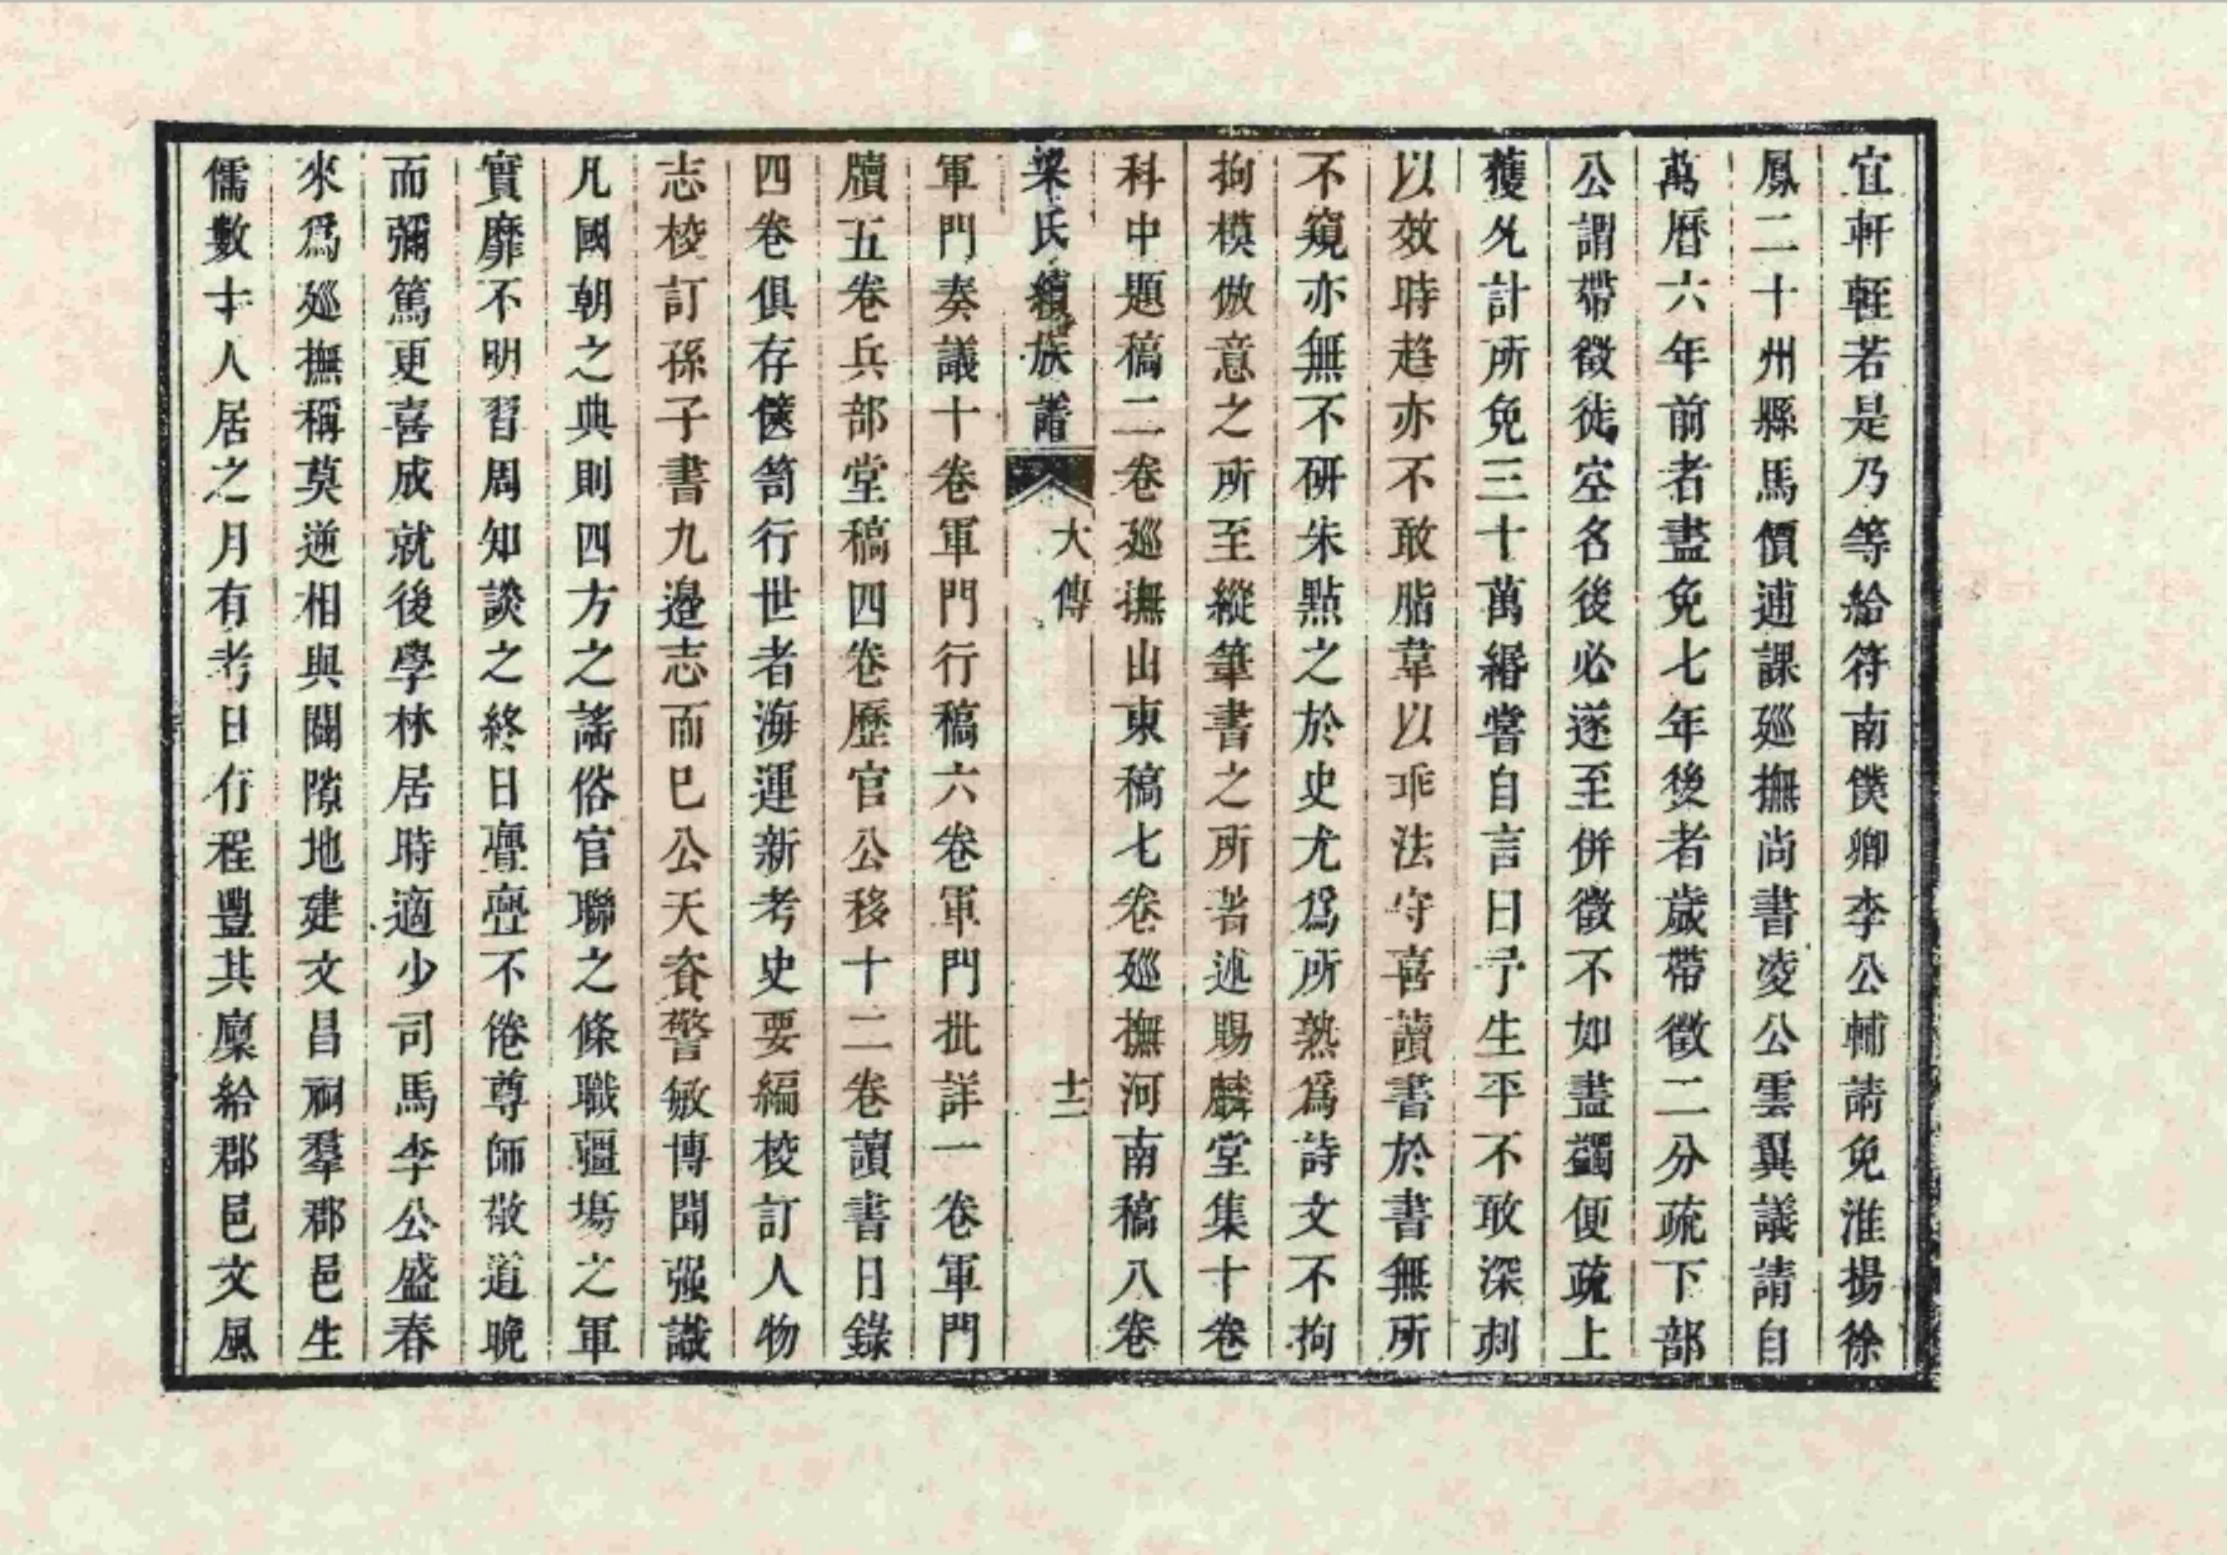 宜軒輊若是乃等給符南僕卿李公輔請免淮揚徐
鳳二十州縣馬價逋課廵撫尚書凌公雲翼議請自
萬曆六年前者盡免七年後者歲帶徵二分疏下部
公謂帶徵徙空名後必遂至併徵不如盡蠲便疏上
獲允計所免三十萬緡嘗自言曰予生平不敢深刺
以效時趋亦不敢脂韋以乖法守喜讀書於書無所
不窺亦無不研朱點之於史尤爲所熟爲詩文不拘
拘模倣意之所至縱筆書之所著述賜麟堂集十卷
科中題稿二卷廵撫山東稿七卷廵撫河南稿八卷
梁氏續族譜
大傳
十二
軍門奏議十卷軍門行稿六卷軍門批詳一卷軍門
牘五卷兵部堂稿四卷歷官公移十二卷讀書日錄
四卷俱存篋笥行世者海運新考史要編校訂人物
志校訂孫子書九邊志而巳公天資警敏博聞强識
凡國朝之典則四方之謠俗官聯之條職疆場之軍
實靡不明習周知談之終日亹亹不倦尊師敬道晚
而彌篤更喜成就後學林居時適少司馬李公盛春
來爲廵撫稱莫逆相與闢隙地建文昌祠羣郡邑生
儒數十人居之月有考日有程豐其廩給郡邑文風